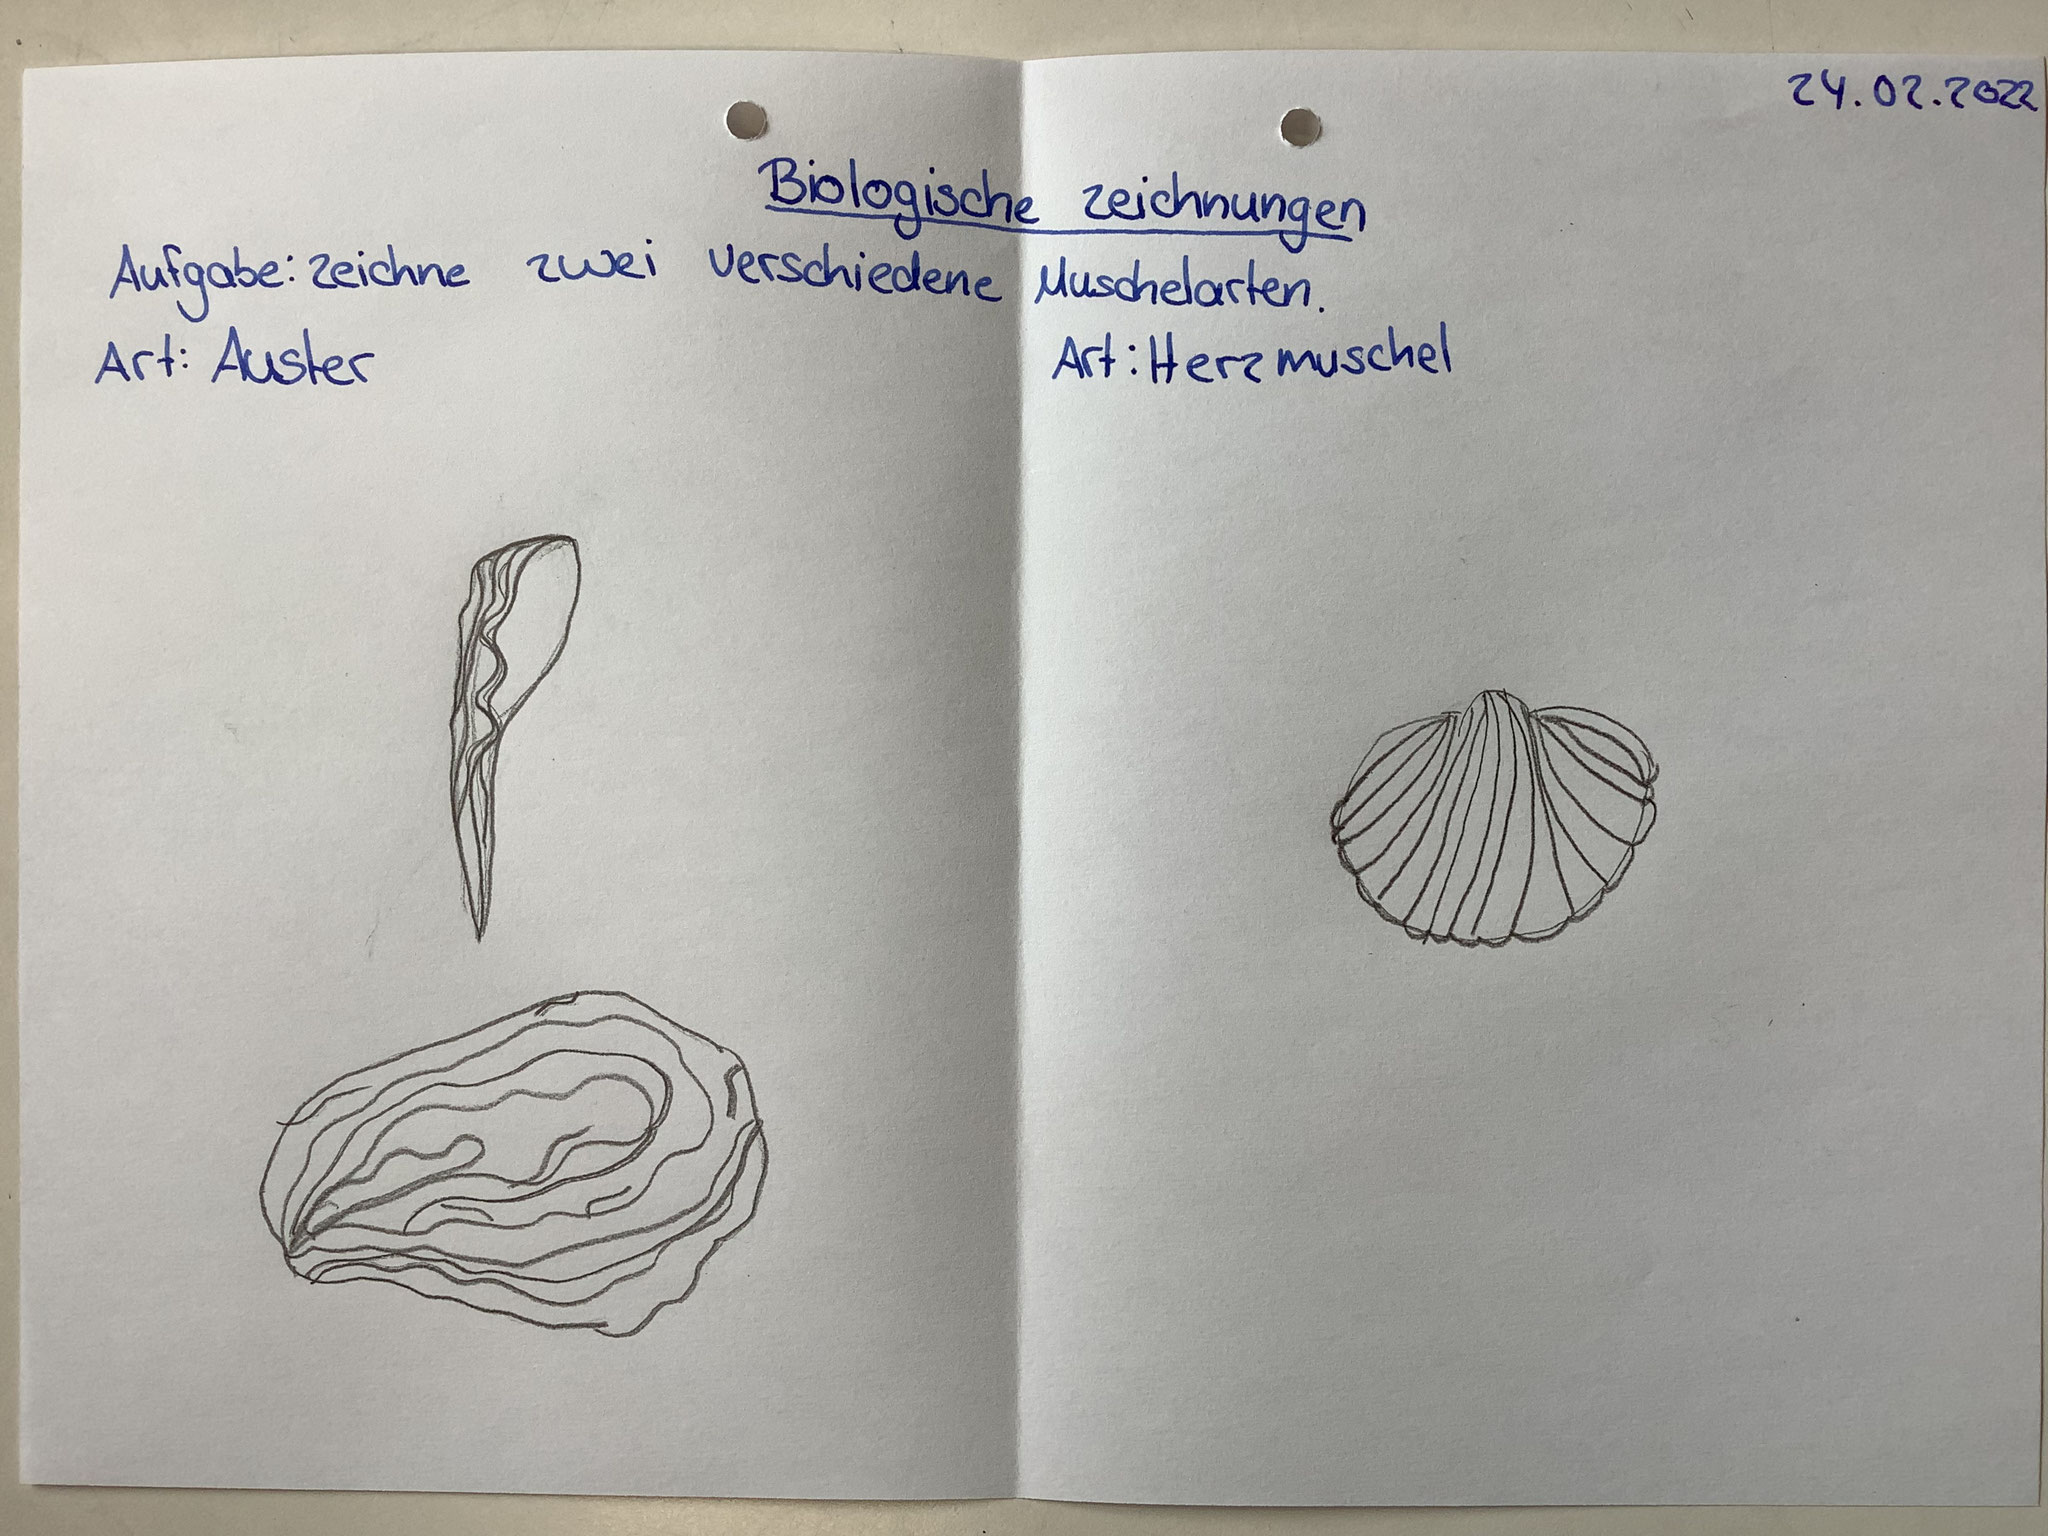 24.02.2022
Biologische zeichnungen
Aufgabe: zeichne zwei verschiedene Muschelarten.
Art: Auster
Art: Herzmuschel